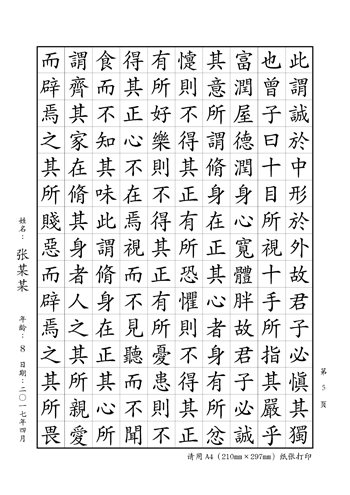 此謂誠於中形於外故君子必慎其獨
也曾子曰十目所視十手所指其嚴乎
富潤屋德潤身心寬體胖故君子必誠
其意所謂脩身在正其心者身有所忿
懥則不得其正有所恐懼則不得其正
有所好樂則不得其正有所憂患則不
得其正心不在焉視而不見聽而不聞
食而不知其味此謂脩身在正其心所
謂齊其家在脩其身者人之其所親愛
而辟焉之其所賤惡而辟焉之其所畏
第 5 页
姓名：张某某 年龄：8 日期：二〇一七年四月
请用A4（210mm×297mm）纸张打印